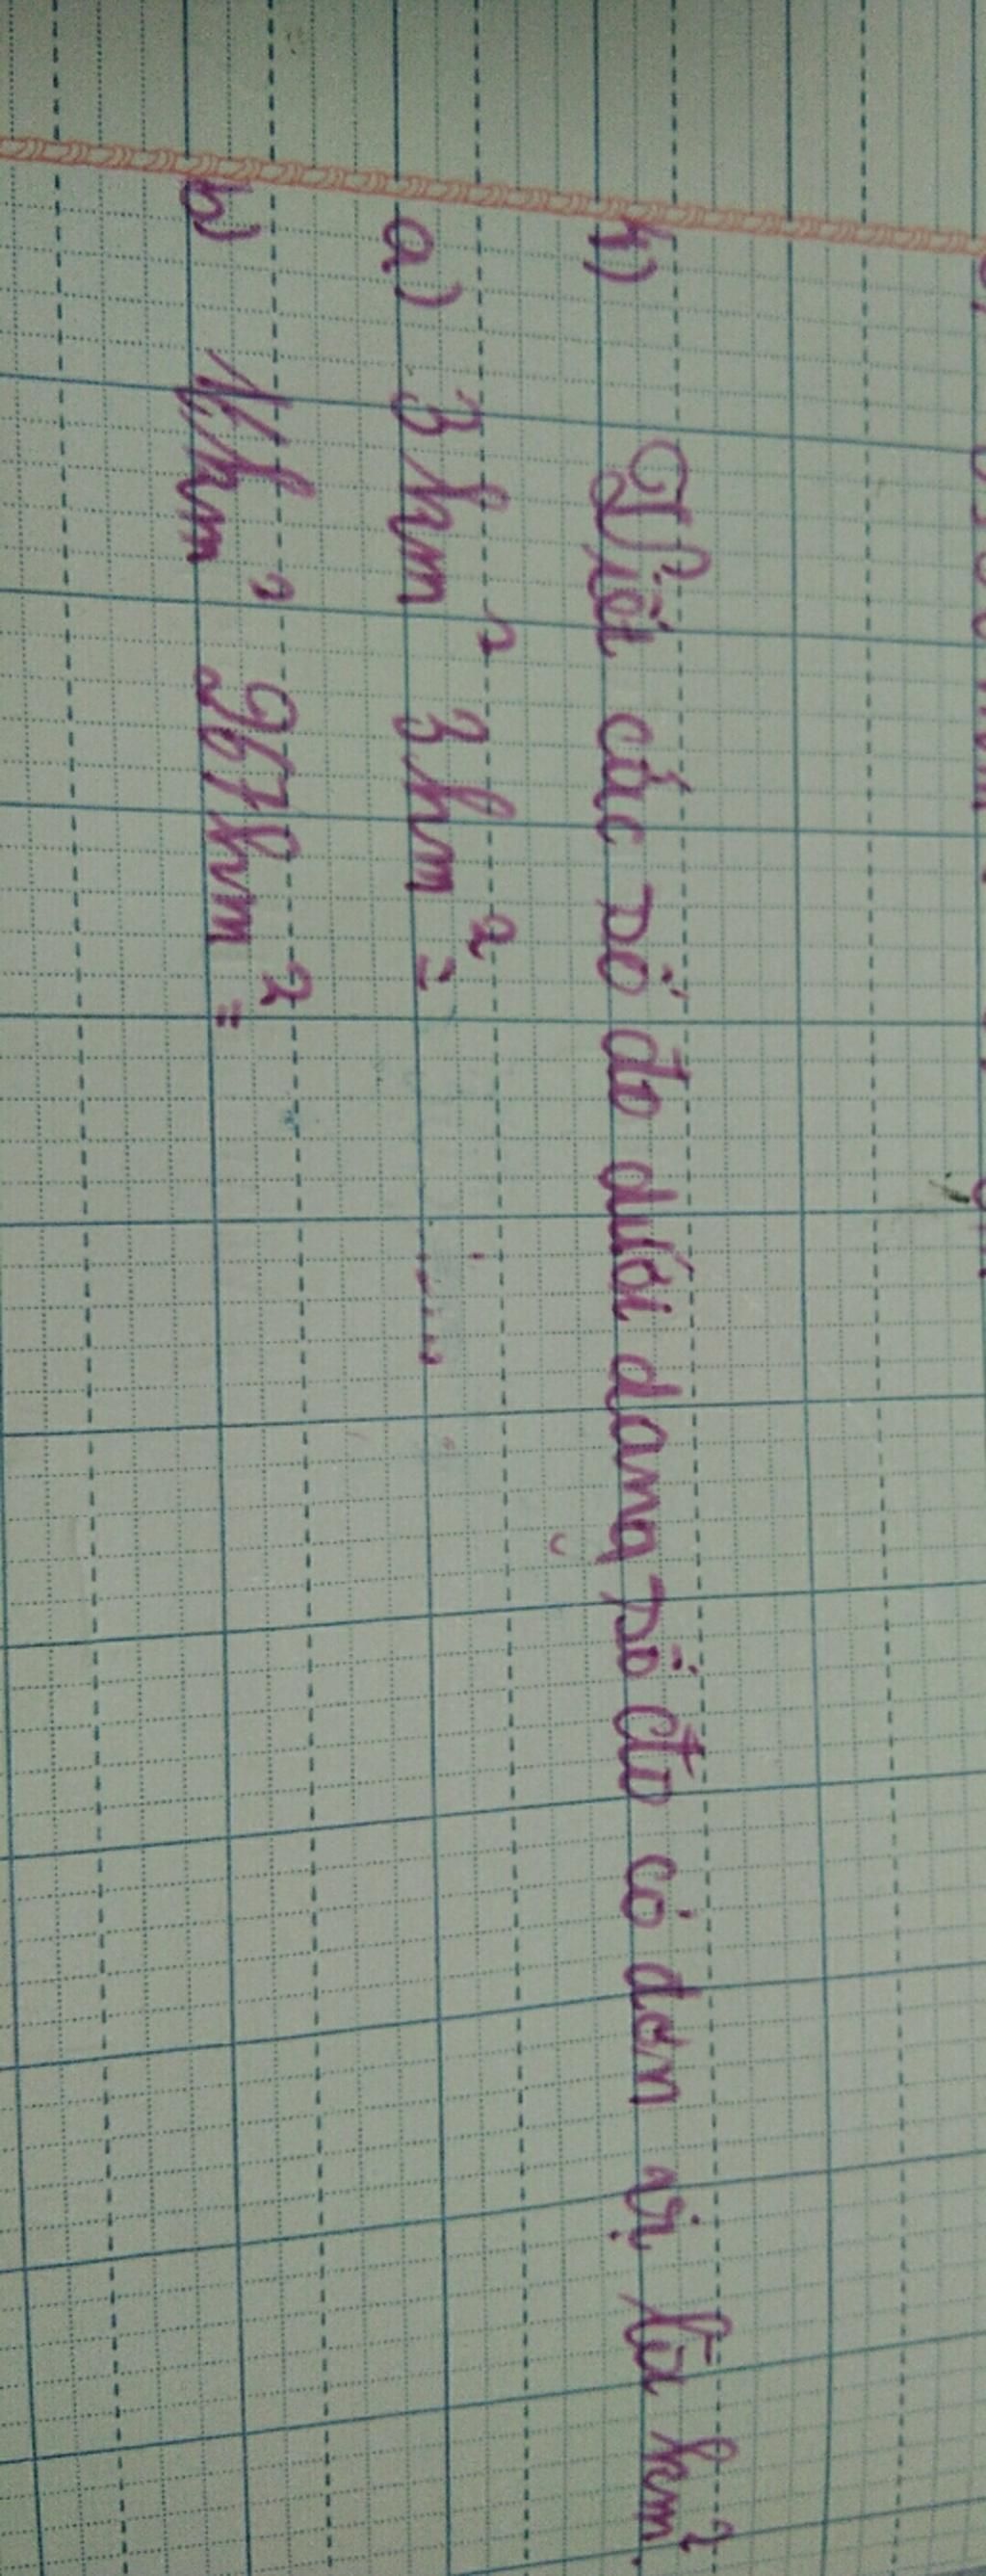 4) Viết các số đo dưới dạng số đo có đơn vị là km².
a) 3 km² 3 hm² = .....
b) 1 km² 267 hm² =